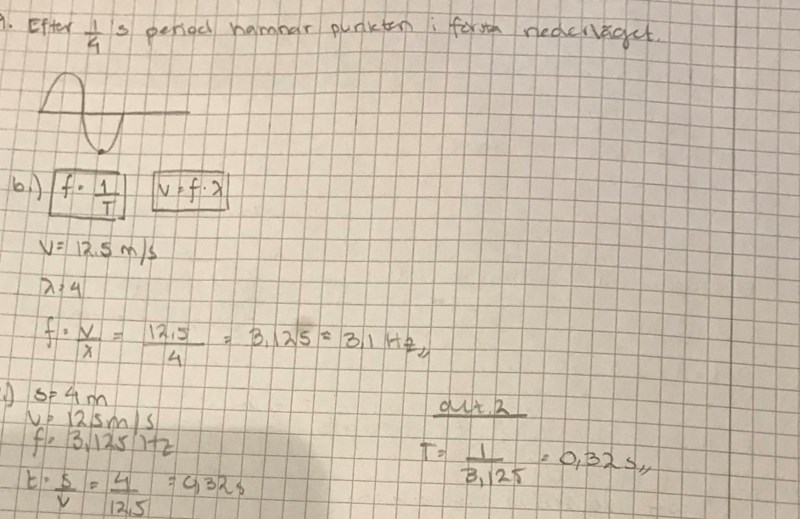 1. Efter 1/4's period hamnar punkten i första nederläget.
b.) f = 1/T v = f · λ
V = 12.5 m/s
λ = 4
f = v/λ = 12,5/4 = 3,125 = 3,1 Hz,,
.) s = 4m
v = 12,5m/s
f = 3,125 Hz
t = s/v = 4/12,5 = 0,32s
alt. 2
T = 1/3,125 = 0,32s,,